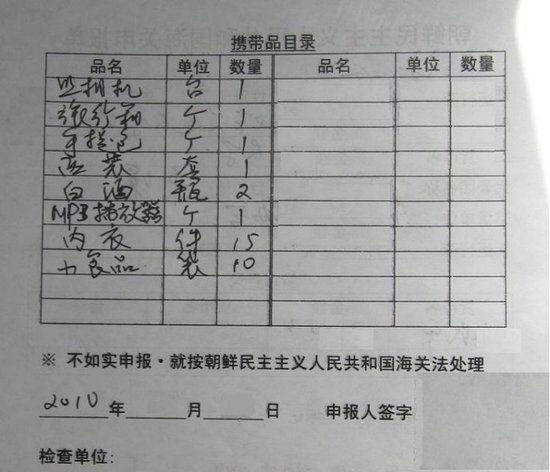 携带品目录
品名 单位 数量 品名 单位 数量
照相机 台 1
旅行箱 个 1
手提包 个 1
西装 套 1
白酒 瓶 2
MP3播放器 个 1
内衣 件 15
小食品 袋 10
※ 不如实申报·就按朝鲜民主主义人民共和国海关法处理
2010年 月 日 申报人签字
检查单位: